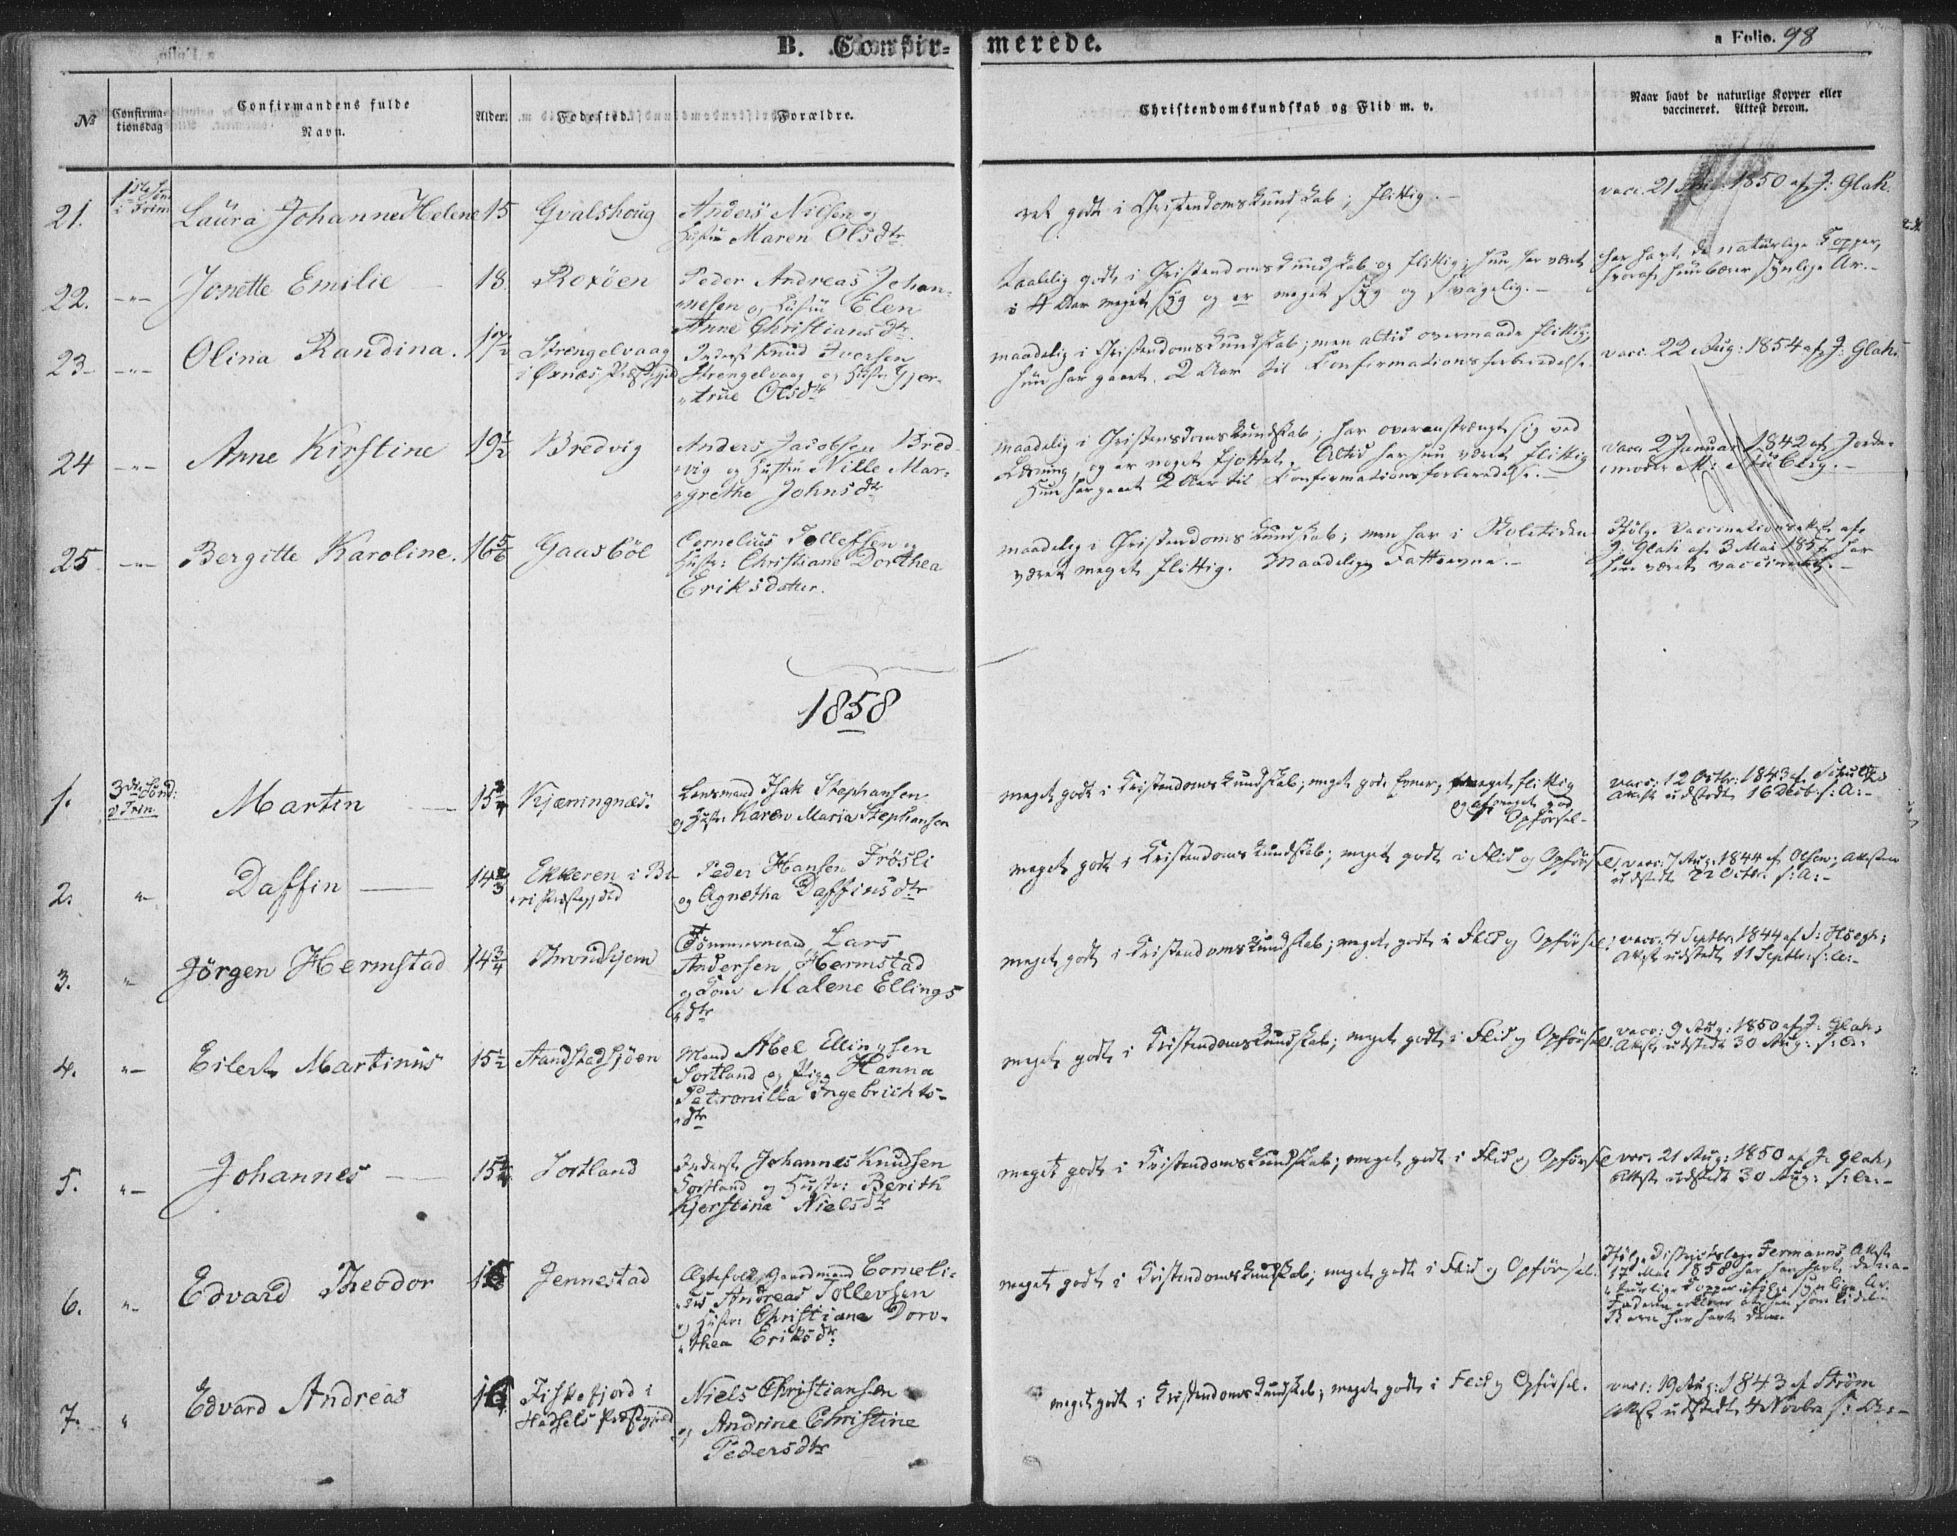 B. Confir-
merede.
a Folio. 98
No
Confirma-
tionsdag
Confirmandens fulde
Navn.
Alder.
Fødested.
Forældre.
Christendomskundskab og Flid m. v.
Naar havt de naturlige Kopper eller
vaccineret. Attest derom.
21.
1ste Sønd.
i Trin.
Laura Johanne Helene
15
Gvalshoug
Anders Nilsen og
Hustru Maren Olsdtr
ret godt i Christendomskundskab; flittig. -
vacc. 21 1850 af J: Glak.
22.
-"-
Jonette Emilie
18.
Roxöen
Peder Andreas Johan-
nesen og Hustru Elen
Anne Christiansdtr
taalelig godt i Christendomskundskab og flittig; hun har været
i 4 Aar meget syg og er meget syg og svagelig. -
har havt de naturlige Kopper,
hvoraf hun bærer synlige Ar. -
23.
-"-
Olina Randina.
17½
Strengelvaag
i Öxnæs Præstegjeld
Inderst Knud Iversen
Strengelvaag og Hustr: Gjer-
"true Olsdtr
maadelig i Christendomskundskab; men altid overmaade flittig;
hun har gaaet 2 Aar til Confirmationsforberedelse.
vacc. 22 Aug: 1854 af J: Glak.
24
-"-
Anne Kirstine
19½
Bredvig
Anders Jacobsen Bred-
vig og Hustru Nille Mar-
"grethe Johnsdtr
maadelig i Christendomskundskab; har overanstrængt sig ved
Læsning, og er noget . Altid har hun været flittig
Hun har gaaet 2 Aar til Confirmationsforberedelse. -
vacc. 2 Januar 1842 af Jorde-
moder M: Stüblig. -
25
-"-
Bergitte Karoline.
16 5/6
Gaasböl
Cornelius Tollefsen og
Hustr: Christiane Dorthea
Eriksdatter.
maadelig i Christendomskundskab; men har i Skoletiden
været meget flittig. Maadelig Fatteevne. -
Ifølge Vaccinationsattest af
J. Glak af 3 Mai 1857 har
hun været vaccineret. -
1858
1.
3die Sønd:
e Trin.
Martin
15¾
Kjæringnæs.
Lensmand Isak Stephansen
og Hustr: Karen Maria Stephansen
meget godt i Kristendomskundskab; meget gode Evner, meget flittig
og af meget god
Opførsel. -
vacc: 12 Octbr: 1843 af Schultz
Attest udstedt 16 Decb: s: A: -
2.
"
Daffin
14⅔
Ekkeren i Bi-
"ri Præstegjeld
Peder Hansen Frösli
og Agnetha Daffinsdtr
meget godt i Kristendomskundskab; meget godt i Flid og Opførsel;
vacc. 7 Aug: 1844 af Olsen; Attesten
udstedt 22 Octbr: s: A: -
3.
"
Jörgen Hermstad
14¾
Throndhjem
Tömmermand Lars
Andersen Hermstad
og Kone Malene Ellings
"dtr
meget godt i Kristendomskundskab; meget godt i Flid og Opførsel;
vacc. 4 Septbr: 1844 af S: Höegh;
Attest udstedt 11 Septbr: s: A: -
4.
"-
Eilert Martinus
15½
Sandstadsjöen
Mand Abel Ellingsen
Sortland og Pige Hanna
Petronilla Ingebrichts-
"dtr
meget godt i Kristendomskundskab; meget godt i Flid og Opførsel.
vacc: 9 Aug: 1850 af J: Glak;
Attest udstedt 30 Aug: s: A:
5.
"-
Johannes
15
Sortland
Inderst Johannes Knudsen
Sortland og Hustr: Berith
Kjerstina Nielsdtr
meget godt i Kristendomskundskab; meget godt i Flid og Opførsel
vacc. 21 Aug: 1850 af J: Glak;
Attest udstedt 30 Aug: s: A: -
6.
"-
Edvard Theodor
16
Jennestad
Ægtefolk Gaardmand Corneli-
"us Andreas Tollevsen
og Hustr: Christiane Doro-
"thea Eriksdtr:
meget godt i Kristendomskundskab; meget godt i Flid og Opførsel.
Ifølge Districtslæge Fermanns Attest
17 Mai 1858 har han havt de na-
"turlige Kopper ifølge synlige Ar.
Faderen erklærer at han som lidet
Barn har havt dem.
7.
"
Edvard Andreas
16
Fiskefjord i
Hadsels Præstegjeld
Niels Christiansen
og Andrine Christine
Pedersdtr
meget godt i Kristendomskundskab; meget godt i Flid og Opførsel.
vacc: 19 Aug: 1843 af Ström
Attest udstedt 4 Novbr s: A: -